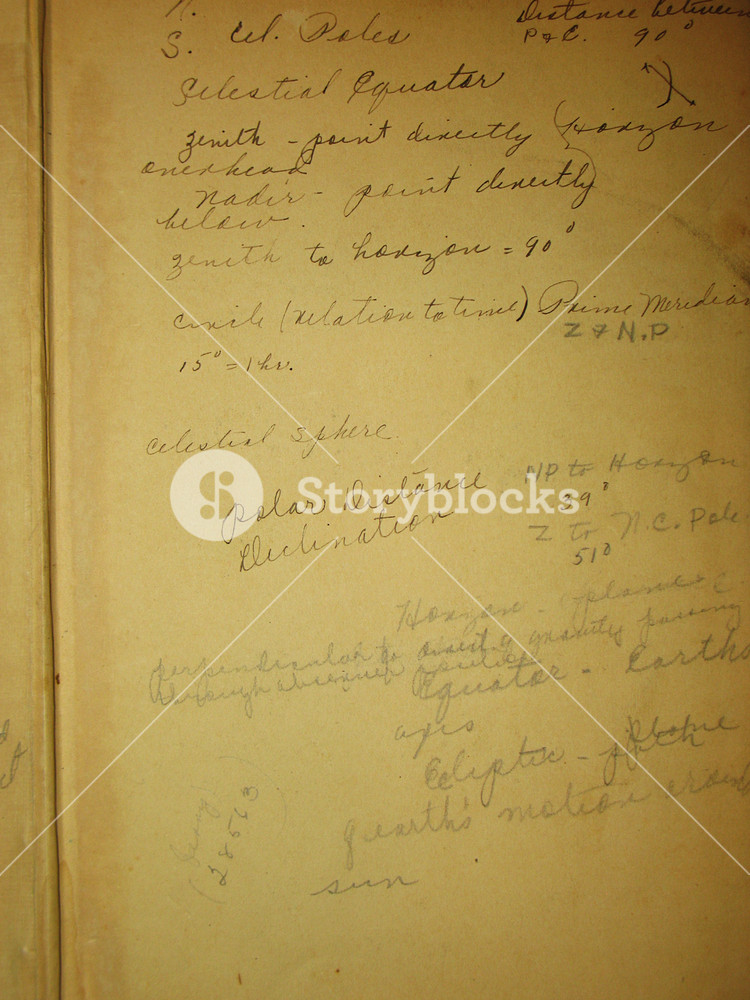 N.
S. Cel. Poles
Distance between
P & E. 90°
Celestial Equator
zenith - point directly (Horizon
overhead
nadir - point directly
below.
zenith to horizon = 90°
circle (relation to time) Prime Meridian
Z & N.P
15° = 1 hr.
Celestial Sphere.
Storyblocks
Polar Distance
Declination
NP to Horizon
39°
Z to N.C. Pole
51°
Horizon - plane
perpendicular to direct. of gravity passing
through observer
Equator - Earths
axis
Ecliptic - plane
of earth's motion around
sun